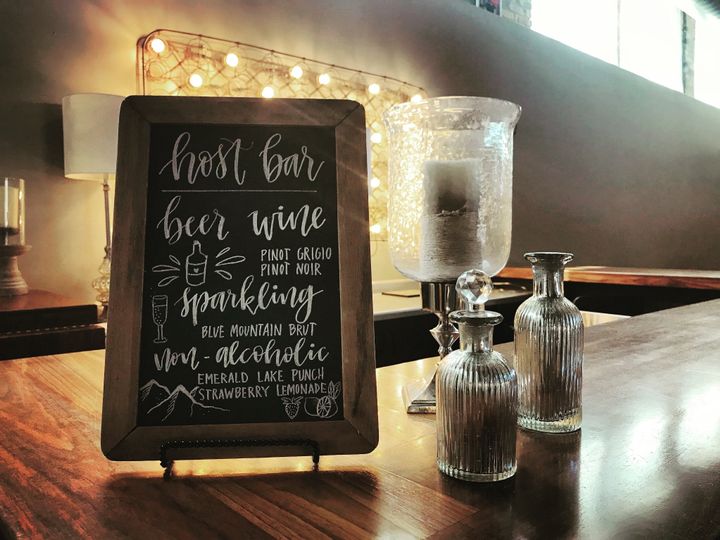 host bar
beer wine
PINOT GRIGIO
PINOT NOIR
sparkling
BLUE MOUNTAIN BRUT
non-alcoholic
EMERALD LAKE PUNCH
STRAWBERRY LEMONADE